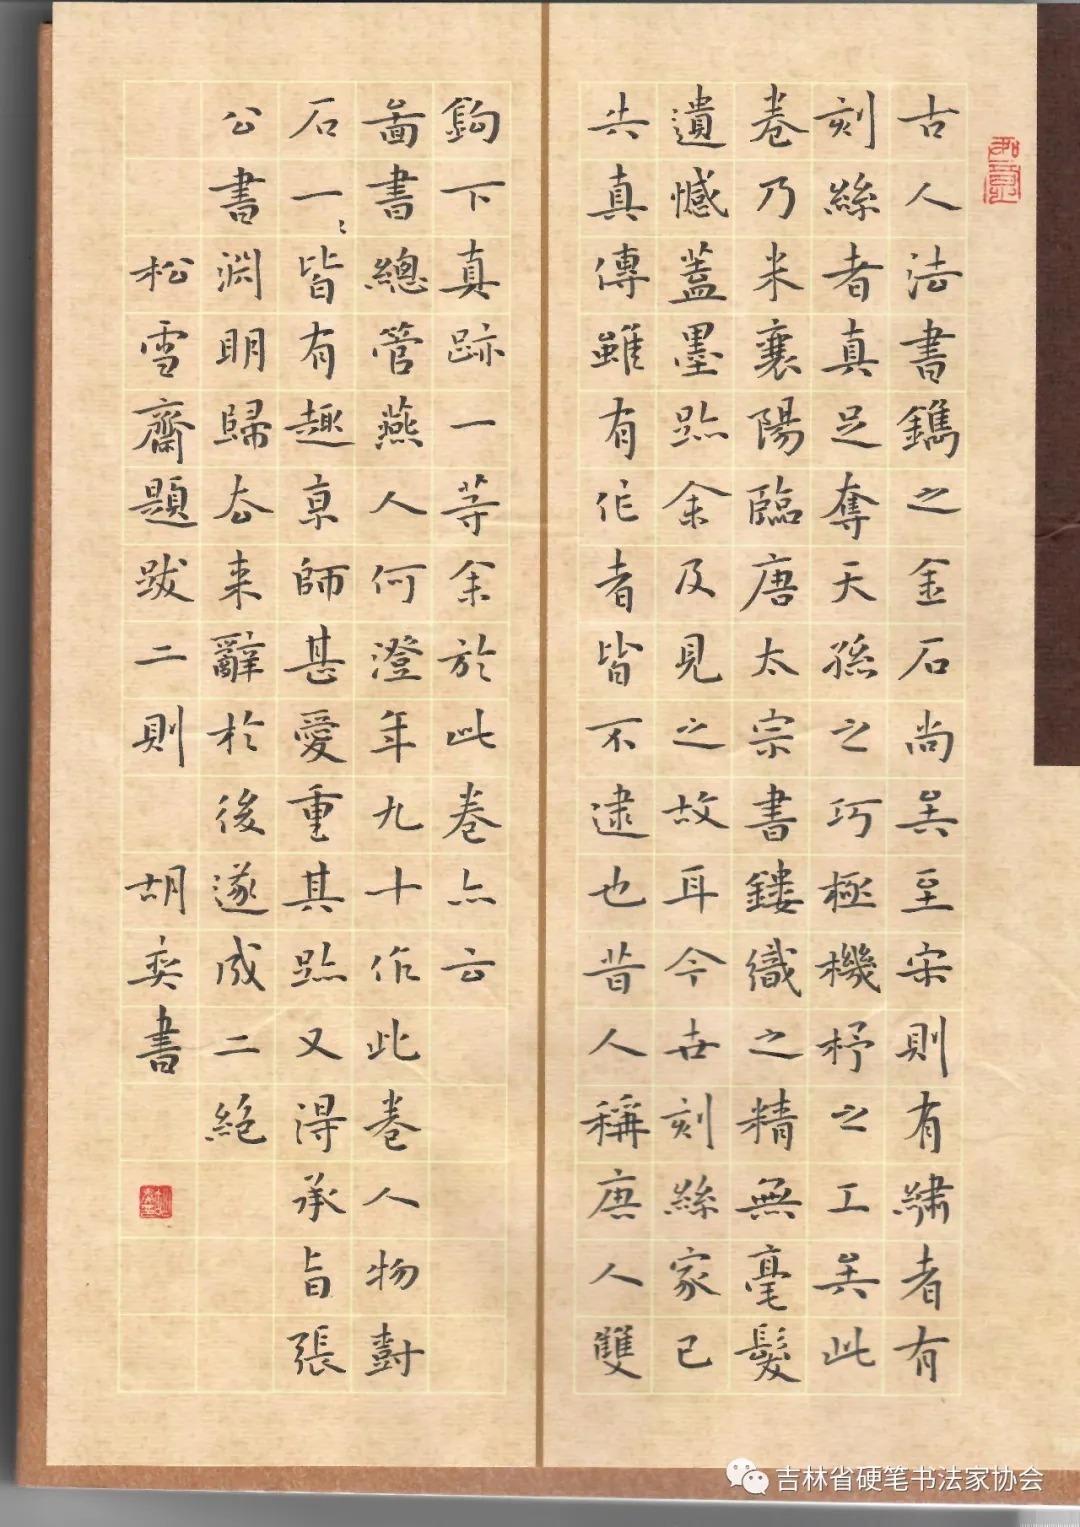 如意
古人法書鐫之金石尚矣至宋則有繡者有
刻絲者真足奪天孫之巧極機杼之工矣此
卷乃米襄陽臨唐太宗書鏤織之精無毫髮
遺憾蓋墨跡余及見之故耳今世刻絲家已
失真傳雖有作者皆不逮也昔人稱唐人雙
鉤下真跡一等余於此卷亦云
圖書總管燕人何澄年九十作此卷人物樹
石一〻皆有趣京師甚愛重其跡又得承旨張
公書淵明歸去來辭於後遂成二絕
松雪齋題跋二則 胡奕書
吉林省硬笔书法家协会